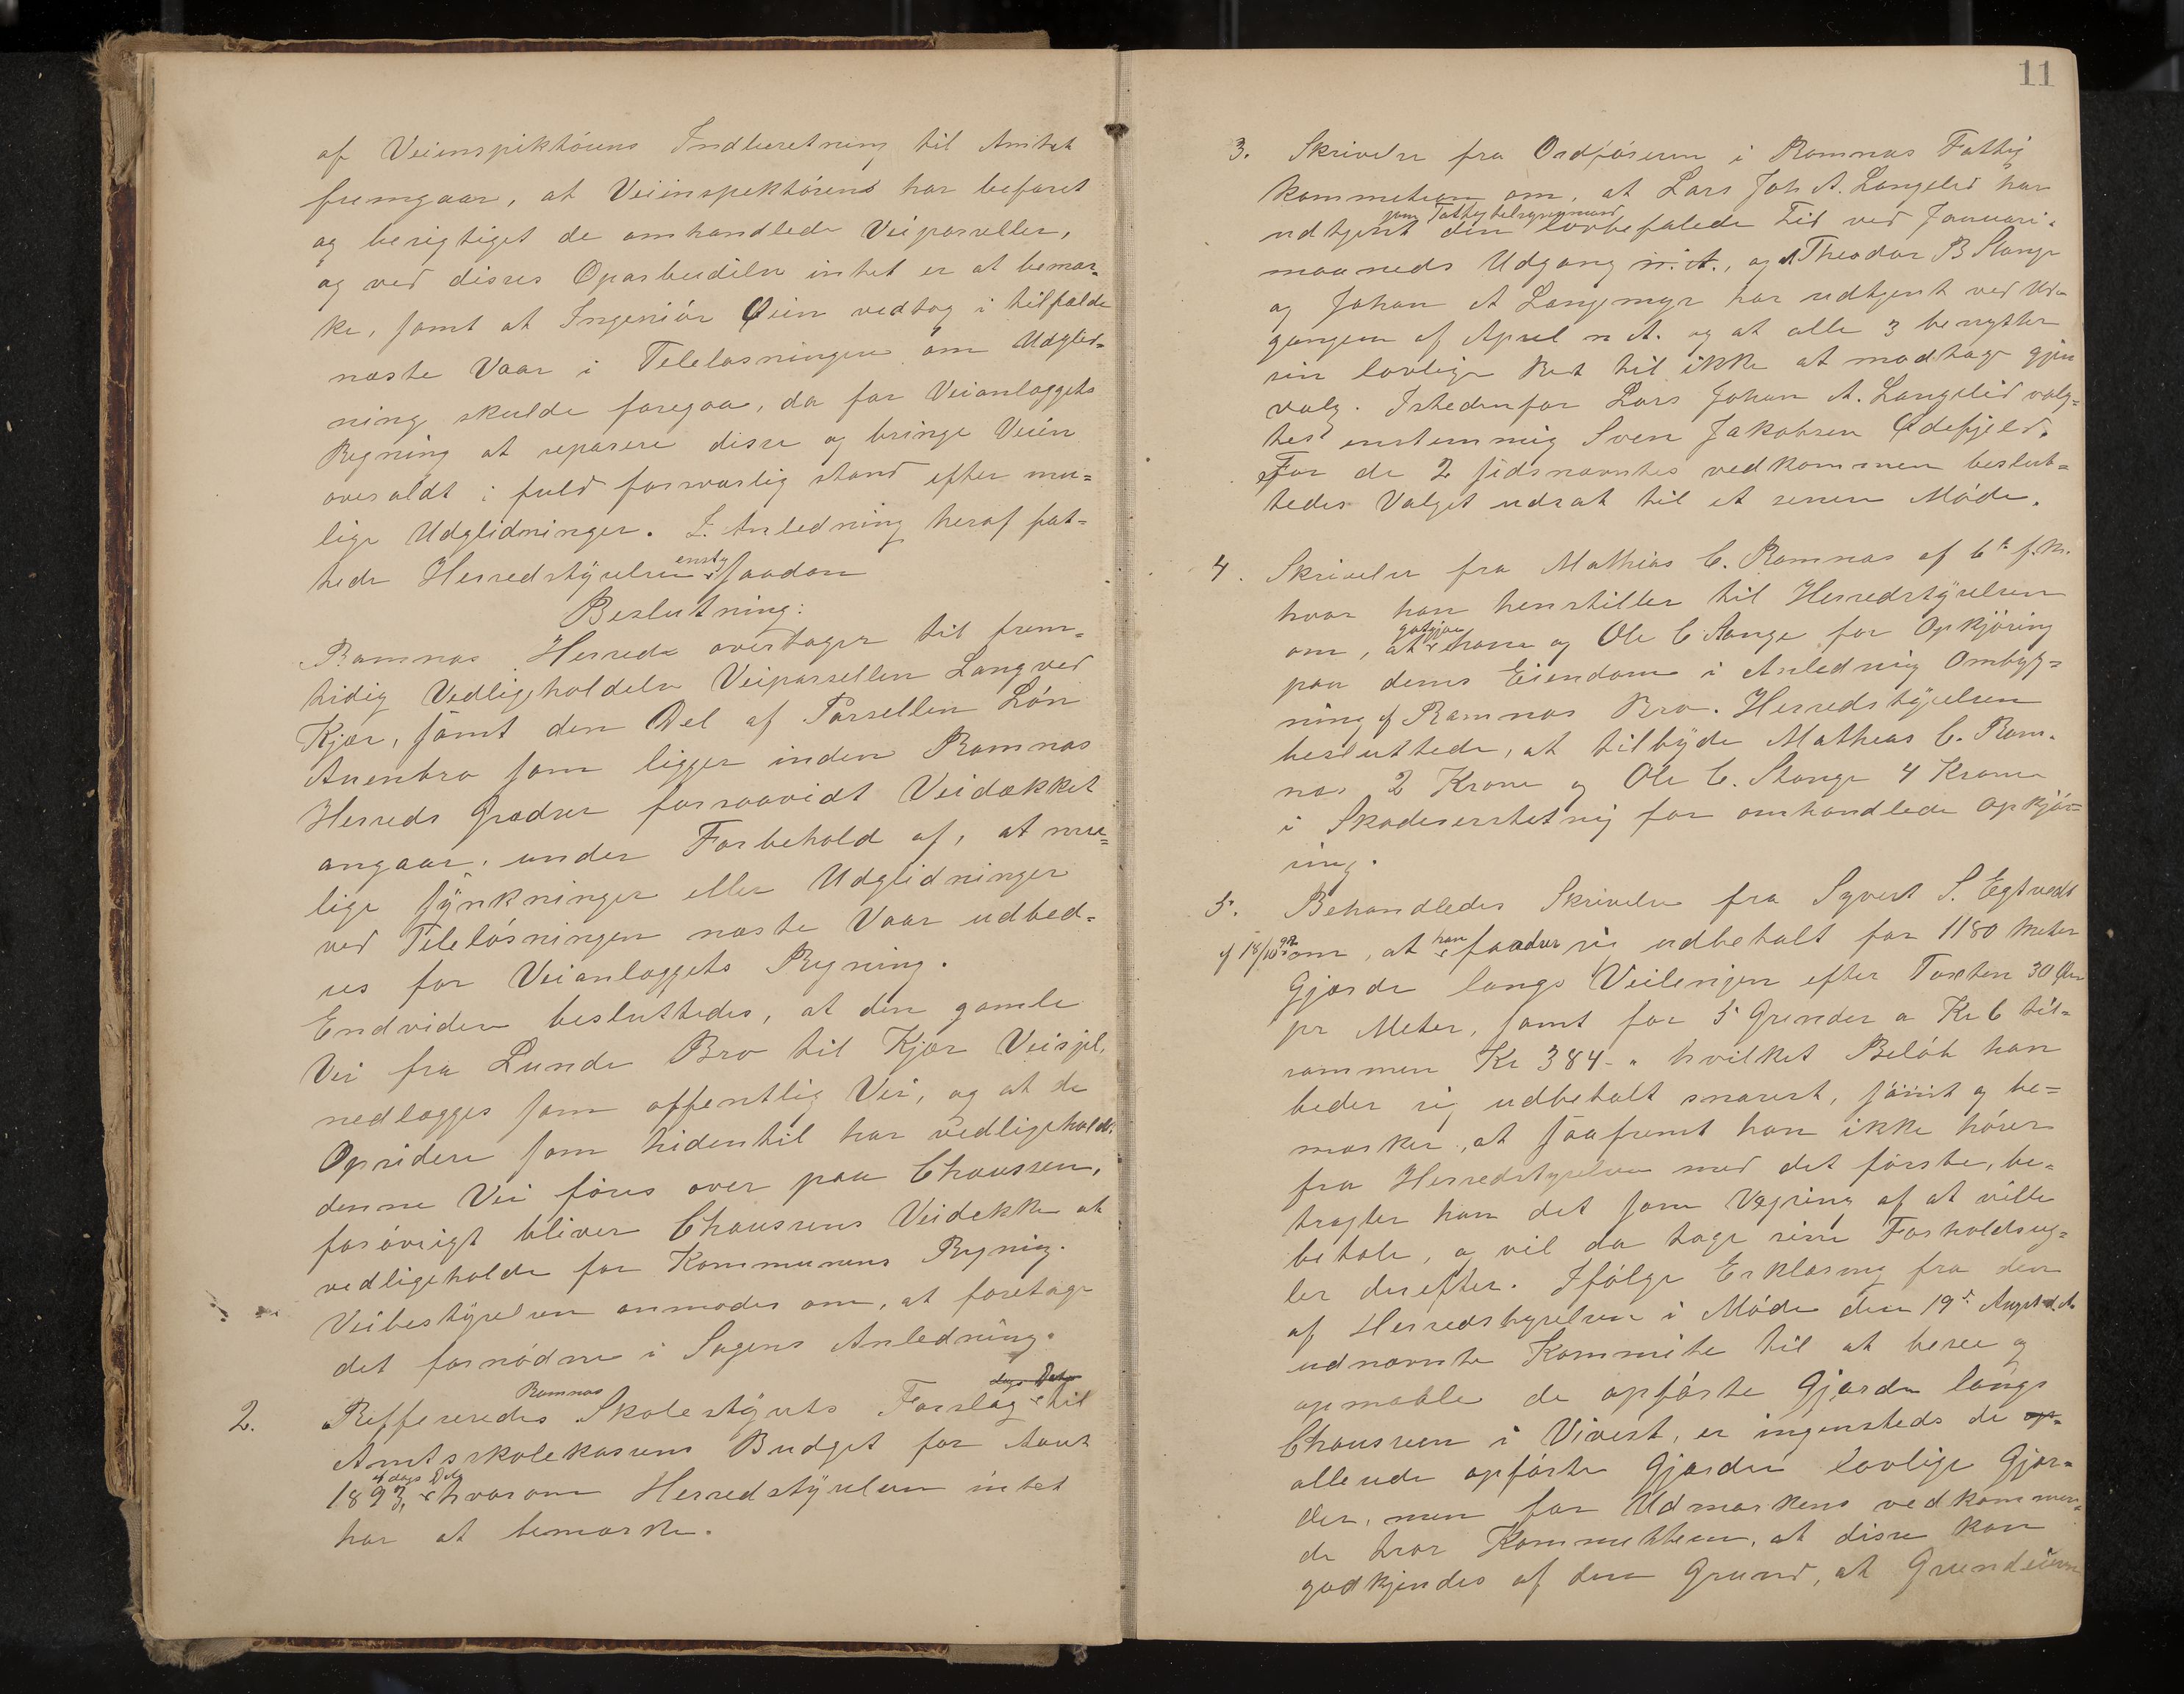 af Veiinspiktörens Indberetning til Amtet
fremgaar, at Veiinspektörens har befaret
og berigtiget de omhandlede Veiparseller,
og ved disses Oparbeidelse intet er at bemær-
ke, samt at Ingeniör Öien vedtog i tilfælde
næste Vaar i Teleløsningen om Udglid-
ning skulde foregaa, da for Veianlæggets
Regning at reparere disse og bringe Veien
overaldt i fuld forsvarlig stand efter mu-
lige Udglidninger. I Anledning heraf fat-
tede Herredstyrelsen enstg saadan
Beslutning:
Ramnæs Herrede overtager til frem-
tidig Vedligeholdelse Veiparsellen Langved
Kjær, samt den Del af Parsellen Lön
Auenbro som ligger inden Ramnæs
Herreds Grædser forsaavidt Veidækket
angaar, under Forbehold af, at mu-
lige synkninger eller Udglidninger
ved Teleløsningen næste Vaar udbed-
res for Veianlæggets Regning.
Endvidere besluttedes, at den gamle
Vei fra Lunde Bro til Kjær Veispl.
nedlægges som offentlig Vei, og at de
Opsidere som hidentil har vedligeholdt
denne Vei föres over paa Chausseen,
forövrigt bliver Chausseens Veidekke at
vedligeholde for Kommunens Regning.
Veibestyrelsen anmodes om, at foretage
det fornödne i Sagens Anledning.
2. Refferedes Ramnæs Skolestyrets Forslag dags Dato til
Amtsskolekassens Budget for Aaret
1893, af dags Dato hvorom Herredstyrelsen intet
har at bemærke.
11
3. Skrivelse fra Ordföreren i Ramnæs Fattig
kommetion om, at Lars Joh A. Langelid har
udtjent som Fattigtilsynsmand den lovbefalede Tid ved Januari-
maaneds Udgang n. A., og Theodor B Stange
og Johan A Langemyr har udtjent ved Ud-
gangen af April n A. og at alle 3 benytter
sin lovlige Ret til ikke at modtage gjen
valg. Istedenfor Lars Johan A. Langelid valg-
tes enstemmig Sven Jakobsen Ödefjeld.
For de 2 sidsnævntes vedkommen beslut-
tedes Valget udsat til et senere Möde.
4. Skrivelse fra Mathias C. Ramnæs af 6te f.M.
hvor han henstiller til Herredstyrelsen
om, at godgjøre ham og Ole C Stange for Opkjöring
paa deres Eiendom i Anledning Ombyg-
ning af Ramnæs Bro. Herredstyrelsen
besluttede, at tilbyde Mathias C. Ram-
næs 2 Krone og Ole C. Stange 4 Krone
i Skadeserstetnig for omhandlede Opkjör-
ing.
5. Behandledes Skrivelse fra Syvert S. Egtvedt
af 18/10 92 om, at han faader sig udbetalt for 1180 Meter
Gjærde langs Veilinjen efter Taxten 30 Øre
pr Meter, samt for 5 Grinder a Kr 6 til-
sammen Kr 384 - " hvilket Belöb han
beder sig udbetalt snarest, samt og be-
mærker, at saafremt han ikke hörer
fra Herredstyrelsen med det förste, be-
tragter han det som Vegring af at ville
betale, og vil da tage sine Forholdsreg-
ler derefter. Ifölge Erklæring fra den
af Herredstyrelsen i Möde den 19de August d.A
udnævnte Kommite til at besee og
opmaale de opförte Gjærde langs
Chausseen i Vivest, er ingensteds de op-
allerede opförte Gjærder lovlige Gjær-
der, men for Udmarkens vedkommen-
de tror Kommitteen, at disse kan
godkjendes af den Grund, at Grundeieren